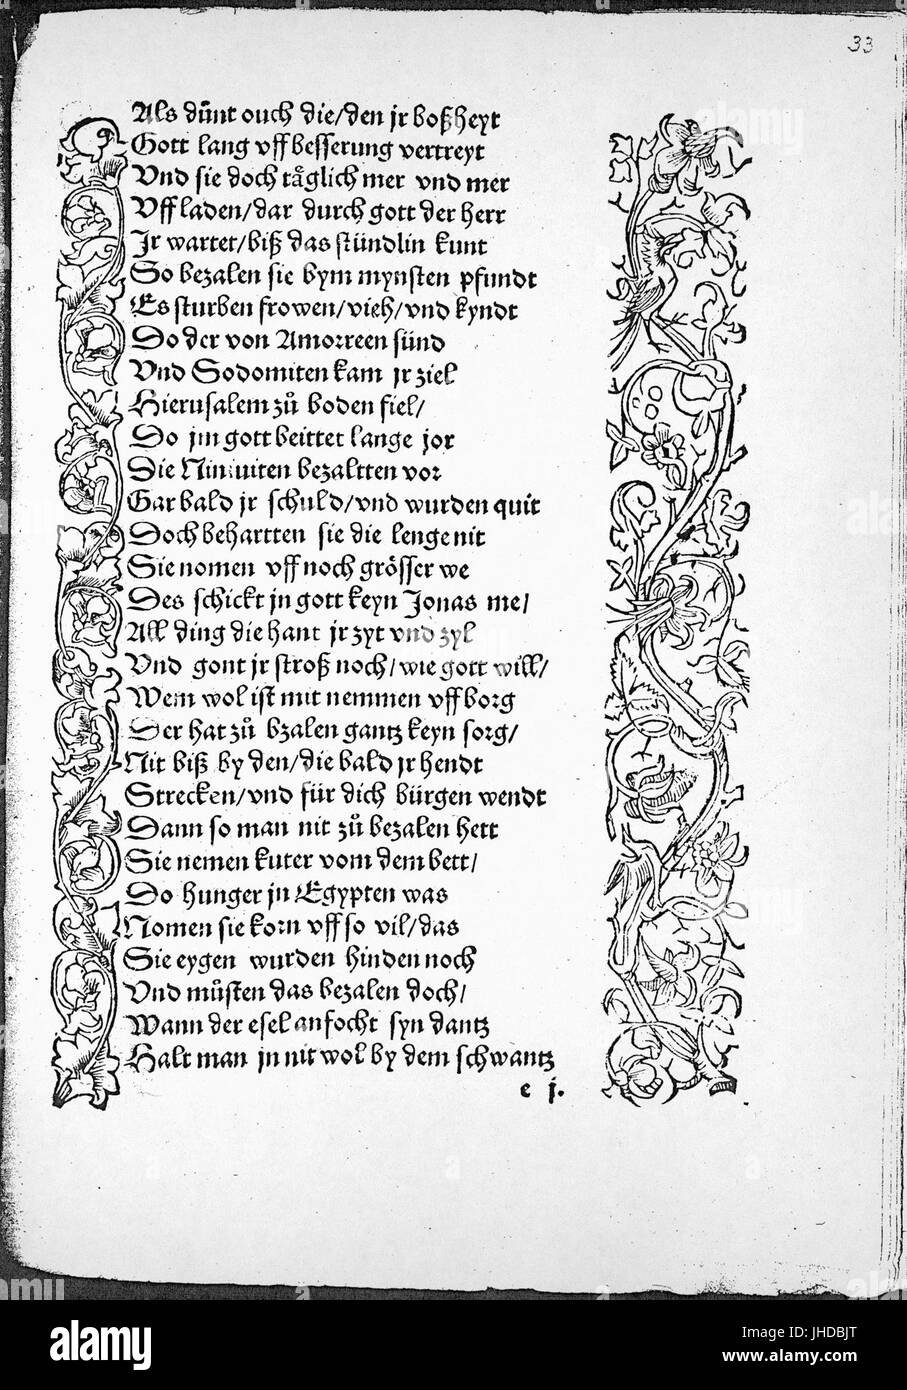 33
Als důnt ouch die/den jr boßheyt
Gott lang vff besserung vertreyt
Vnd sie doch täglich mer vnd mer
Vff laden/dar durch gott der herr
Jr wartet/biß das stündlin kunt
So bezalen sie bym mynsten pfundt
Es sturben frowen/vieh/vnd kyndt
Do der von Amorreen sünd
Vnd Sodomiten kam jr ziel
Hierusalem zů boden fiel/
Do jm gott beittet lange jor
Die Niniuiten bezaltten vor
Gar bald jr schuld/vnd wurden quit
Doch behartten sie die lenge nit
Sie nomen vff noch grösser we
Des schickt jn gott keyn Jonas me/
All ding die hant jr zyt vnd zyl
Vnd gont jr stroß noch/wie gott will/
Wem wol ist mit nemmen vff borg
Der hat zů bzalen gantz keyn sorg/
Nit biß by den/die bald jr hendt
Strecken/vnd für dich bürgen wendt
Dann so man nit zů bezalen hett
Sie nemen kuter vom dem bett/
Do hunger jn Egypten was
Nomen sie korn vff so vil/das
Sie eygen wurden hinden noch
Vnd můsten das bezalen doch/
Wann der esel anfocht syn dantz
Halt man jn nit wol by dem schwantz
e j.
alamy stock photo
JHDBJT
www.alamy.com